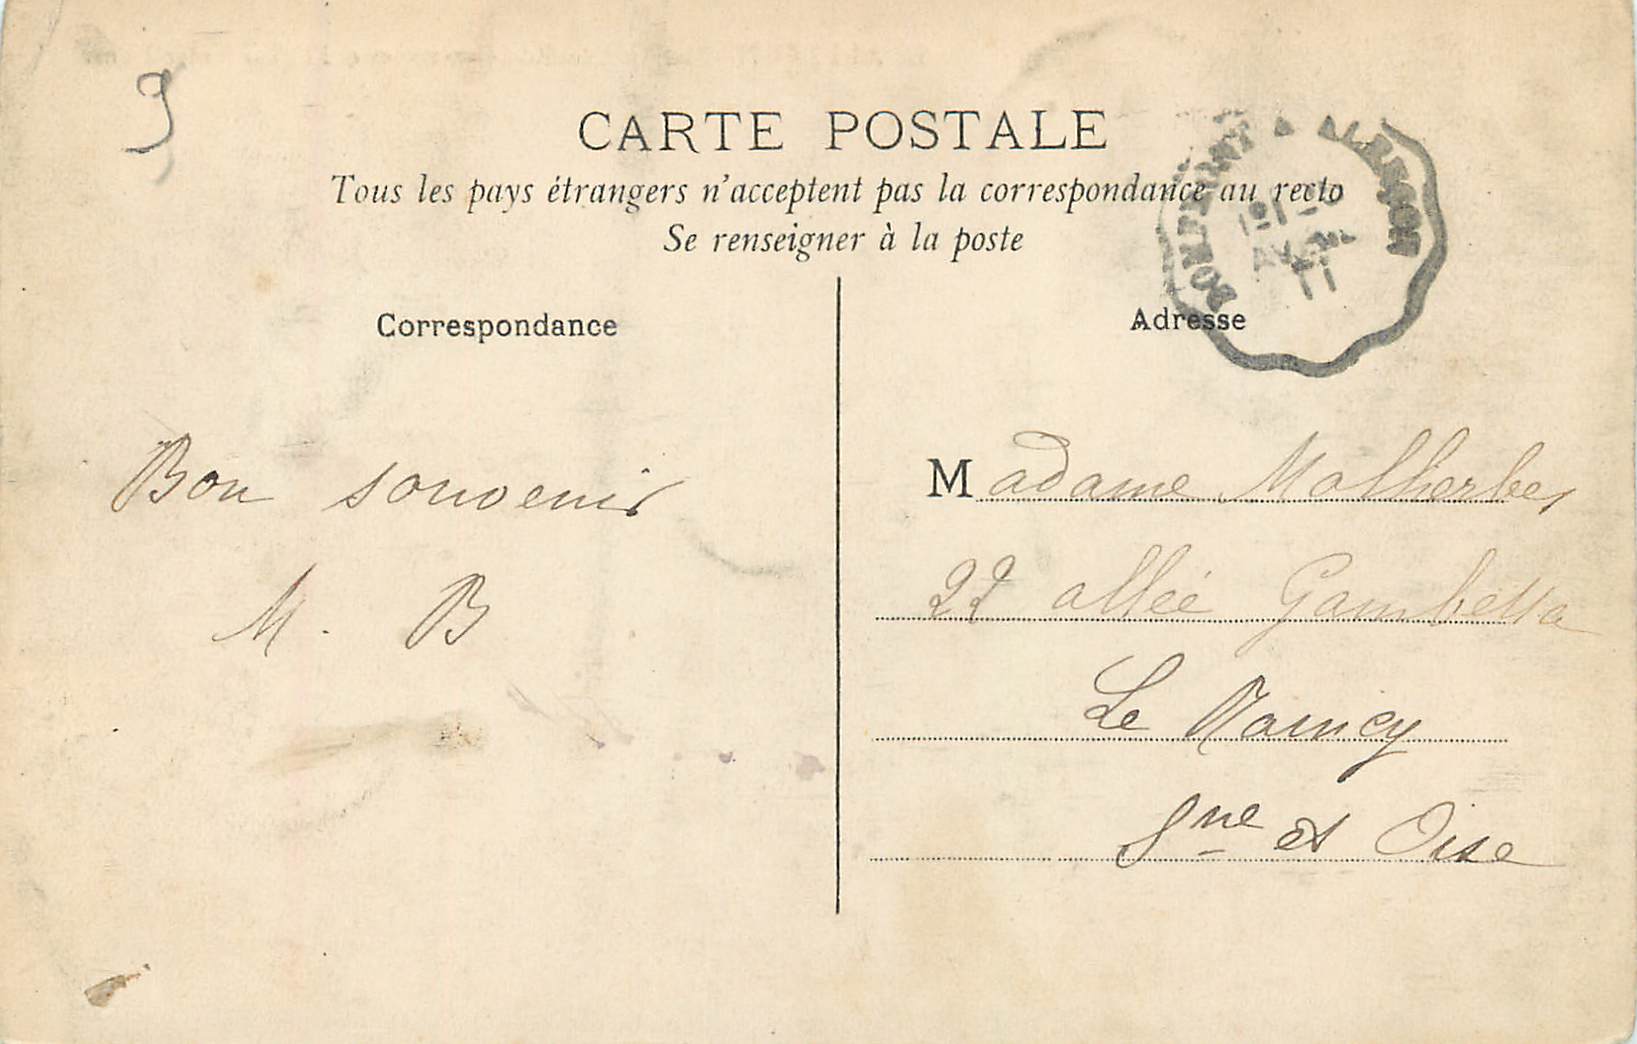 9
CARTE POSTALE
Tous les pays étrangers n'acceptent pas la correspondance au recto
Se renseigner à la poste
DOMFRONT À ALENÇON
11
Correspondance
Adresse
Bon souvenir
M. B
Madame Malherbes
22 allée Gambetta
Le Raincy
Sne et Oise